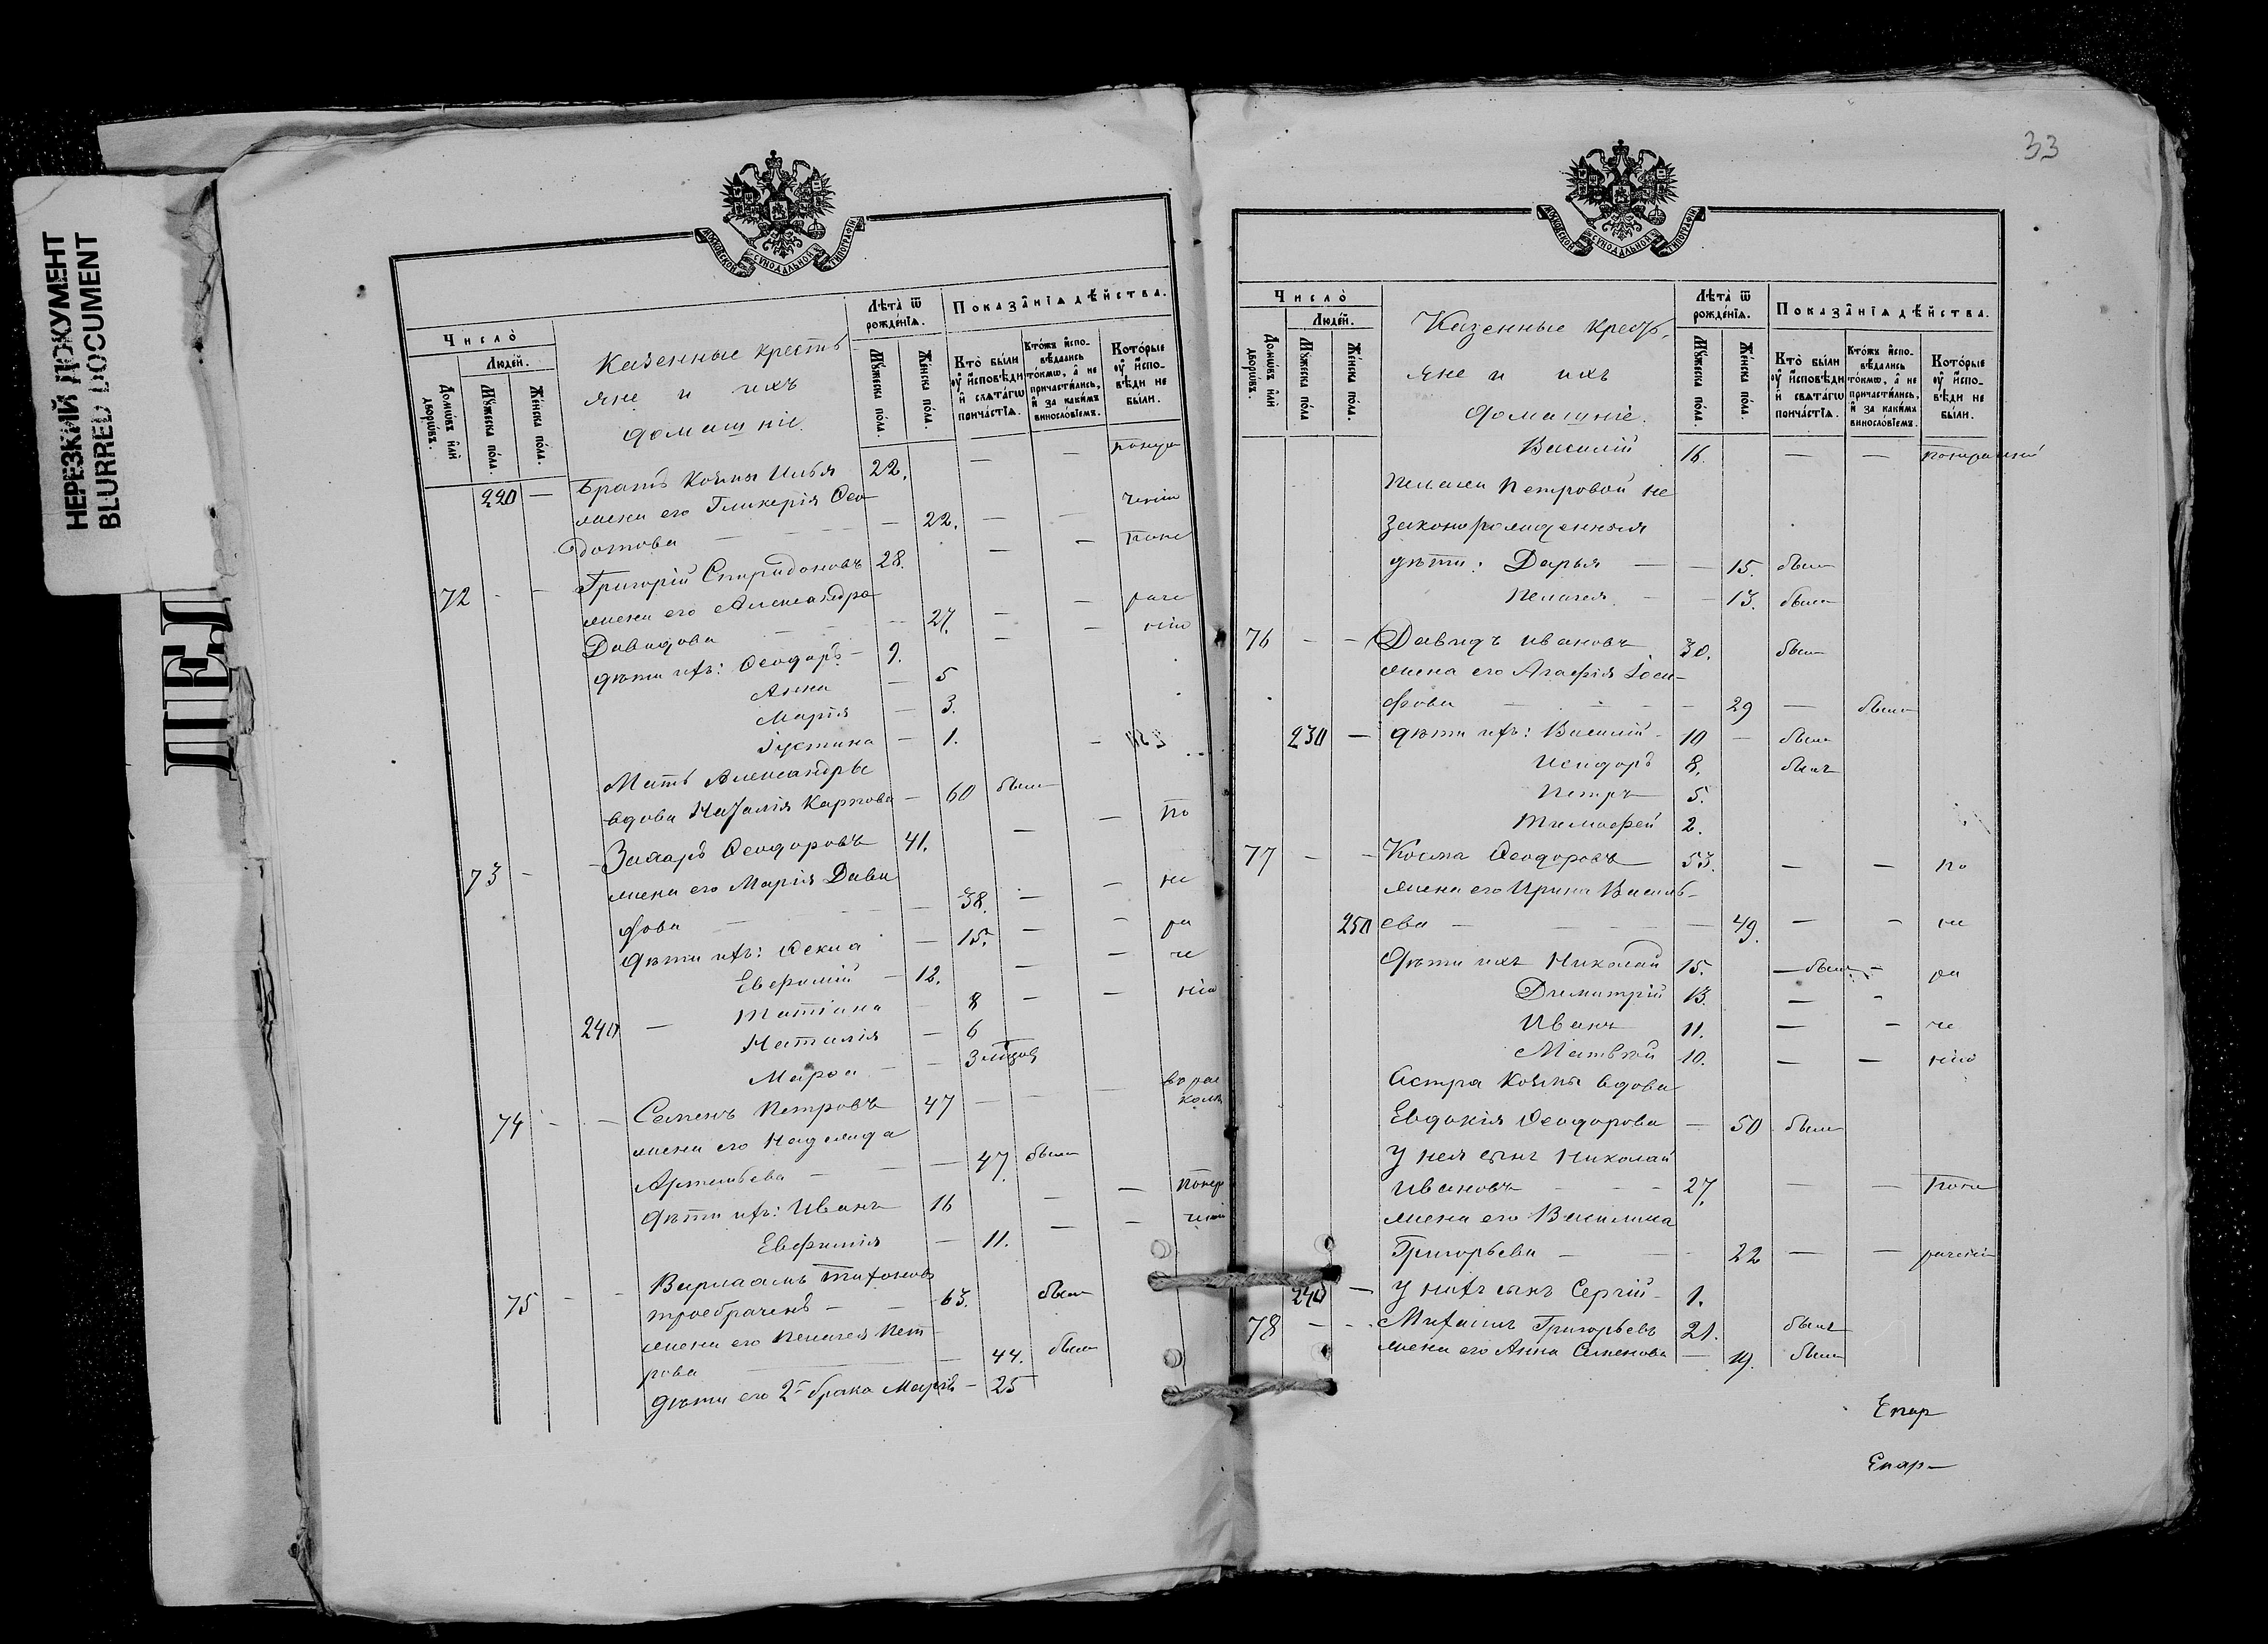 НЕРЕЗКИЙ ДОКУМЕНТ
BLURRED DOCUMENT
МОСКОВСКОЙ СѴНОДАЛЬНОЙ ТИПОГРАФІИ
Число̀
Людей.
Домѡвъ и҆лѝ дворѡвъ.
Мꙋжеска по́ла.
Же́нска по́ла.
Казенные кресть
яне и ихъ
домашніе.
Лѣта̀ ѿ рожде́нїѧ.
Мꙋжеска по́ла.
Же́нска по́ла.
Показа̑нїѧ дѣ́йства.
Кто̀ бы́ли ᲂу҆ и҆сповѣ́ди и҆ свѧта́гѡ прича́стїѧ.
Кто́жъ и҆сповѣ́дались то́кмѡ, а҆ не причасти́лись, и҆ за каки́мъ винослόвїемъ.
Кото́рые ᲂу҆ и҆сповѣ́ди не бы́ли.
220 — Братъ Козмы Илья 22. — — понера
жена его Гликерія Ѳео
дотова — 22. — — ченію
72 - - Григорій Спиридоновъ 28. — — поне
жена его Александра
Давидова — 27. — — раче
дѣти ихъ: Ѳеодоръ 9. — — нію
Анна — 5
Марія — 3.
Іустина — 1.
Мать Александры
вдова Наталія Карпова — 60 была
73 - - Захаръ Ѳеодоровъ 41. — — по
жена его Марія Дави
дова — 38. — — не
дѣти ихъ: Ѳекла — 15. — — ра
Евфимій — 12. — — че
240 — Татіана 8 — — нію
Наталія — 6
Марѳа — 3
74 - - Семенъ Петровъ 47 — — — въ рас
колѣ
жена его Надежда
Артемьева — 47 была
дѣти ихъ: Иванъ 16 — — понер
Евфимія — 11. — — ченію
75 - - Варлаамъ Тихоновъ
троебраченъ — 63. былъ
жена его Пелагея Пет
рова — 44. была
дѣти его 2г брака Марія — 25
33
МОСКОВСКОЙ СѴНОДАЛЬНОЙ ТИПОГРАФІИ
Число̀
Людей.
Домѡвъ и҆лѝ дворѡвъ.
Мꙋжеска по́ла
Же́нска по́ла.
Казенные кресть
яне и ихъ
домашніе.
Лѣта̀ ѿ рожде́нїѧ.
Мꙋжеска по́ла.
Же́нска по́ла.
Показа̑нїѧ дѣ́йства.
Кто̀ бы́ли ᲂу҆ и҆сповѣ́ди и҆ свѧта́гѡ прича́стїѧ.
Кто́жъ и҆сповѣ́дались то́кмѡ, а҆ не причасти́лись, и҆ за каки́мъ винослόвїемъ.
Кото́рые ᲂу҆ и҆сповѣ́ди не бы́ли.
Василій 16. — —
Пелагеи Петровой не
законорожденныя
дѣти: Дарья — — 15. была
Пелагея — — 13. была
76 - - Давидъ Ивановъ 30. былъ
жена его Агафія Іоси-
фова — 29 — была
230 — дѣти ихъ: Василій 10 — былъ
Исидоръ 8. былъ
Петръ 5.
Тимофей 2.
77 - - Косма Ѳеодоровъ 53. — — по
жена его Ирина Василь-
250 ева — 49. — — не
Дѣти ихъ Николай 15. — — ра
Димитрій 13. — -
Иванъ 11. — — че
Матвѣй 10. — — нію
Сестра Козмы вдова
Евдокія Ѳеодорова — 50 была
У нея сынъ Николай
Ивановъ 27. — — поне
жена его Василиса
Григорьева — 22 — — раченію
240 — У нихъ сынъ Сергій 1.
78 - - Михаилъ Григорьевъ 21. былъ
жена его Анна Семенова — 19. была
Епар
Епар-